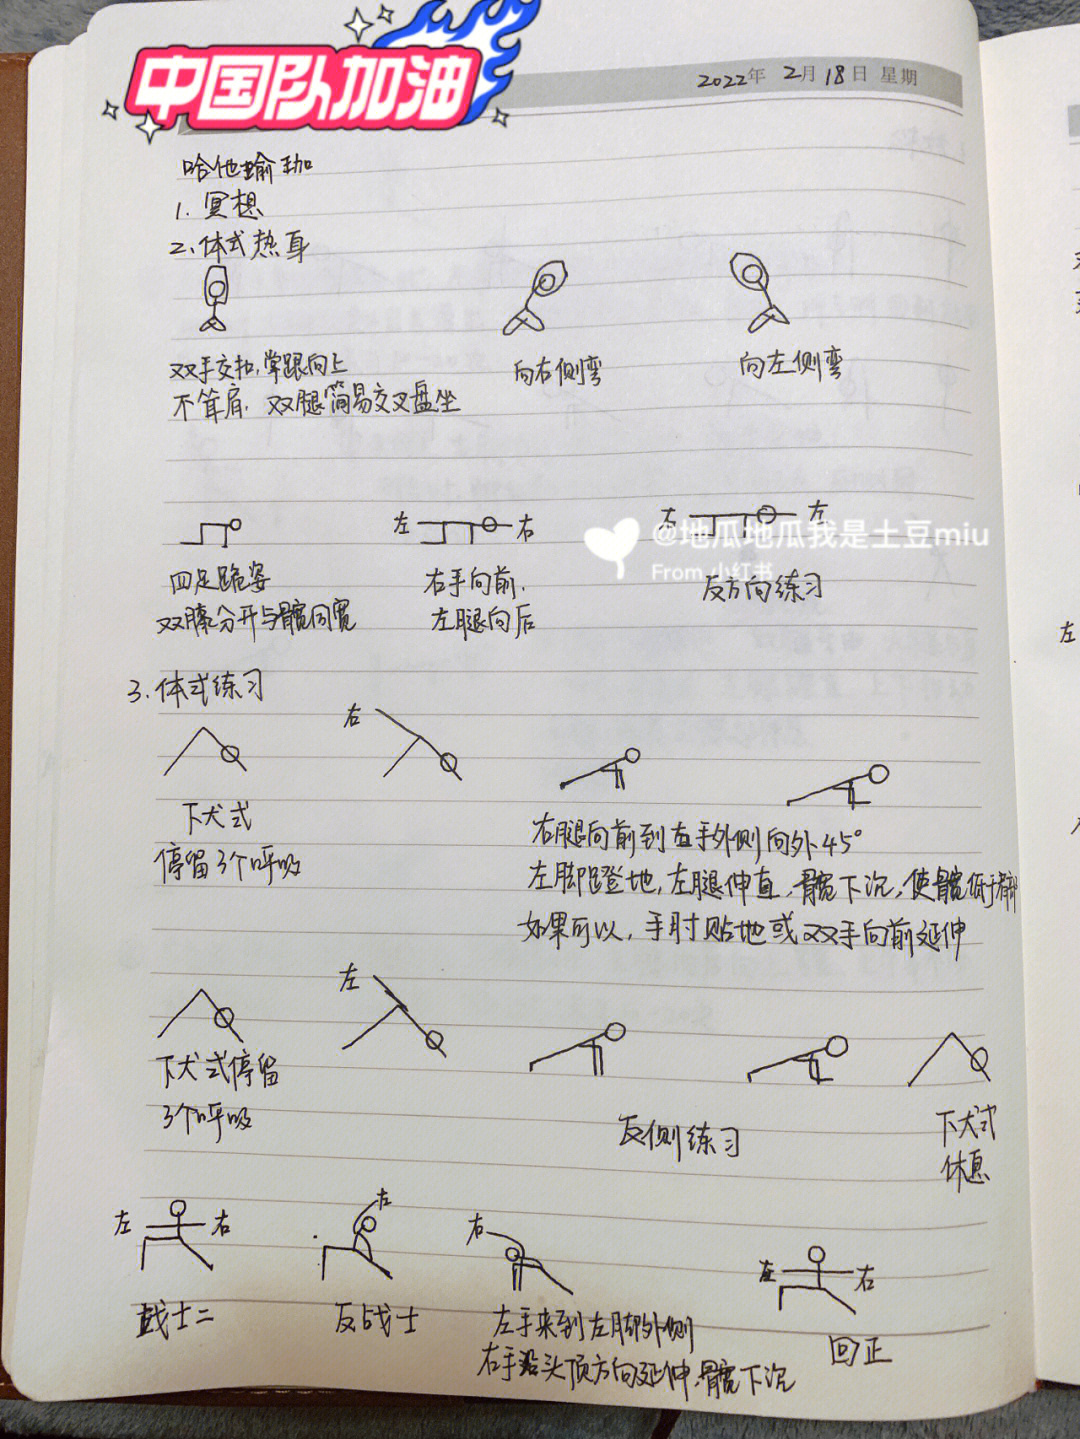 中国队加油
2022年 2月18日 星期
哈他瑜珈
1. 冥想
2、体式热身
双手交扣,掌跟向上
不耸肩. 双腿简易交叉盘坐
向右侧弯
向左侧弯
四足跪姿
双膝分开与髋同宽
左 右
右手向前.
左腿向后
右 左
反方向练习
@地瓜地瓜我是土豆miu
From 小红书
3. 体式练习
下犬式
停留3个呼吸
右
右腿向前到右手外侧向外45°
左脚蹬地,左腿伸直,髋下沉,使髋低于
如果可以,手肘贴地或双手向前延伸
下犬式停留
3个呼吸
左
反侧练习
下犬式
休息
左 右
战士二
左
反战士
右
左手来到左脚外侧
右手沿头顶方向延伸,髋下沉
左 右
回正
左